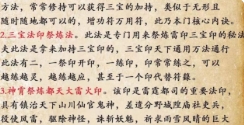 方法，常常修持可以获得三宝的加持，类似于无形且
随时随地都可以的，增功符方符，此乃本门核心内诀。
2.三宝法印祭炼法。此法是专门用来祭炼雷印三宝印的秘
夫此法是拿来加持三宝印，使三宝印天下通用方法通行
此法有二，一都可以的，三宝印常常祭炼之，可以
越炼越灵，越炼越应，甚至于一个印代替符箓。
3.神霄祭炼都天大雷火印。该印是雷霆都司的重要法印，
具有镇治天下山川仙官鬼神，差遣分野城隍庙社吏兵，
役使风雷，驱除神怪，诛斩妖魅，祈求雨雪风晴的巨大